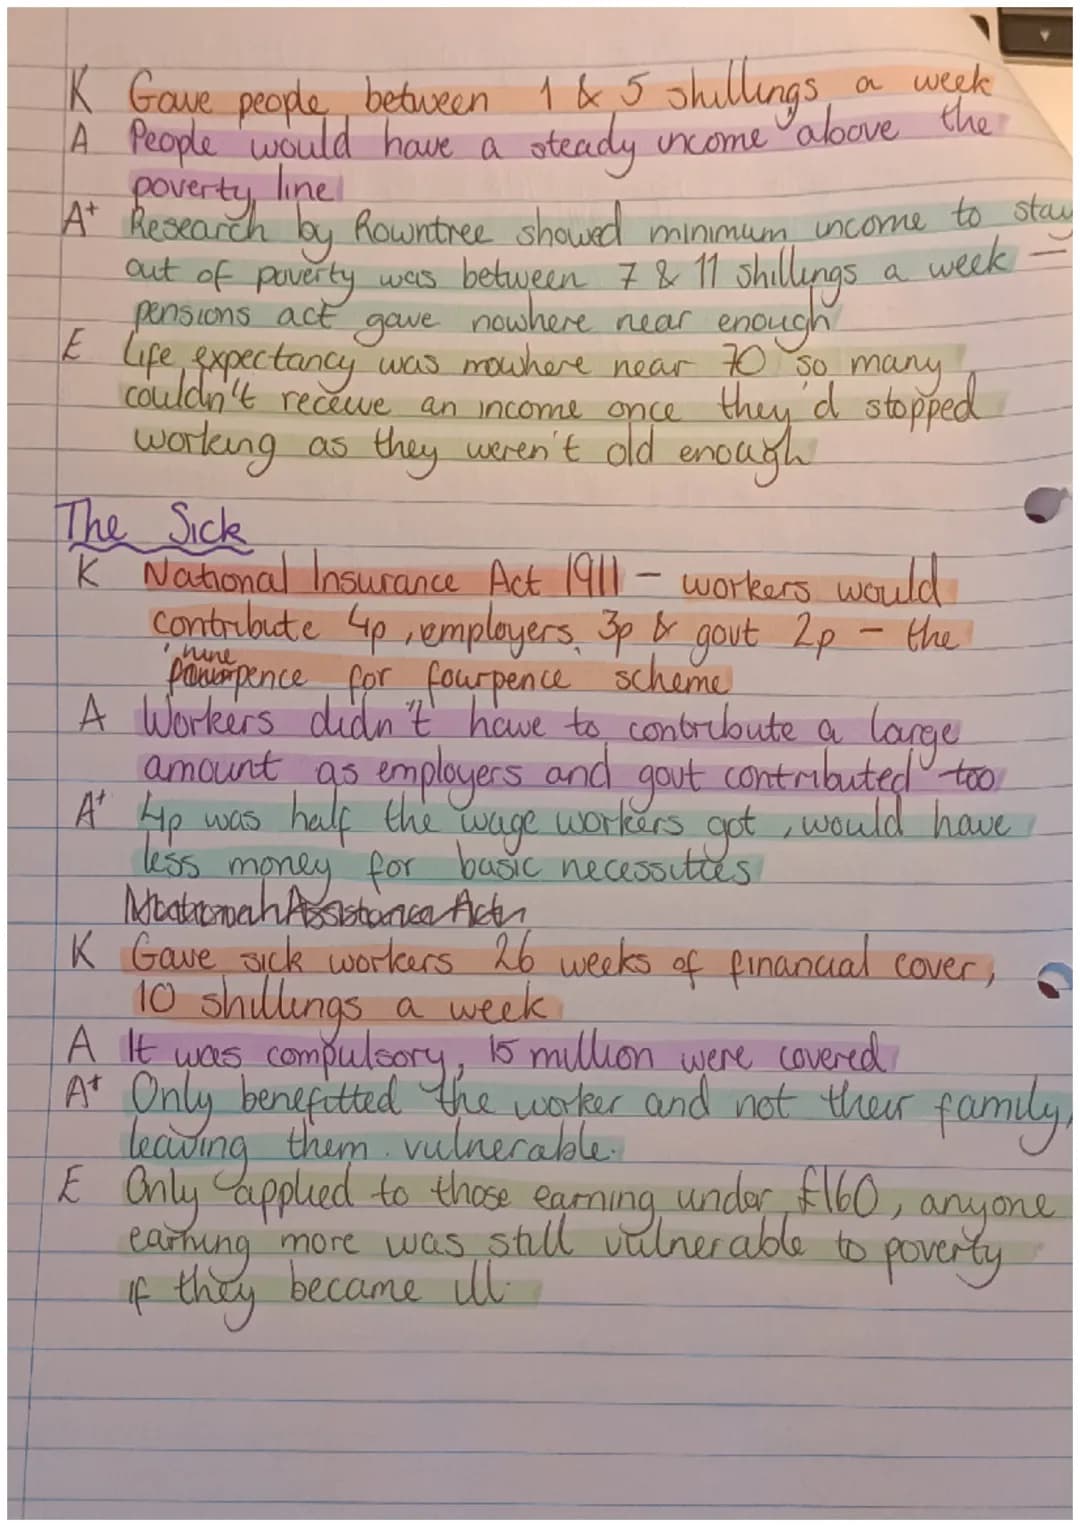 K Gave people between 1 & 5 shillings a week
A People would have a steady income above the
poverty line
A+ Research by Rowntree showed minimum income to stay
out of poverty was between 7 & 11 shillings a week —
pensions act gave nowhere near enough
E Life expectancy was nowhere near 70 so many
couldn't receive an income once they'd stopped
working as they weren't old enough
The Sick
K National Insurance Act 1911 - workers would
contribute 4p, employers 3p & govt 2p - the
'nine
pence for fourpence scheme
A Workers didn't have to contribute a large
amount as employers and govt contributed too
A+ 4p was half the wage workers got, would have
less money for basic necessities
K Gave sick workers 26 weeks of financial cover,
10 shillings a week
A It was compulsory, 15 million were covered
A+ Only benefitted the worker and not their family,
leaving them vulnerable.
E Only applied to those earning under £160, anyone
earning more was still vulnerable to poverty
if they became ill.